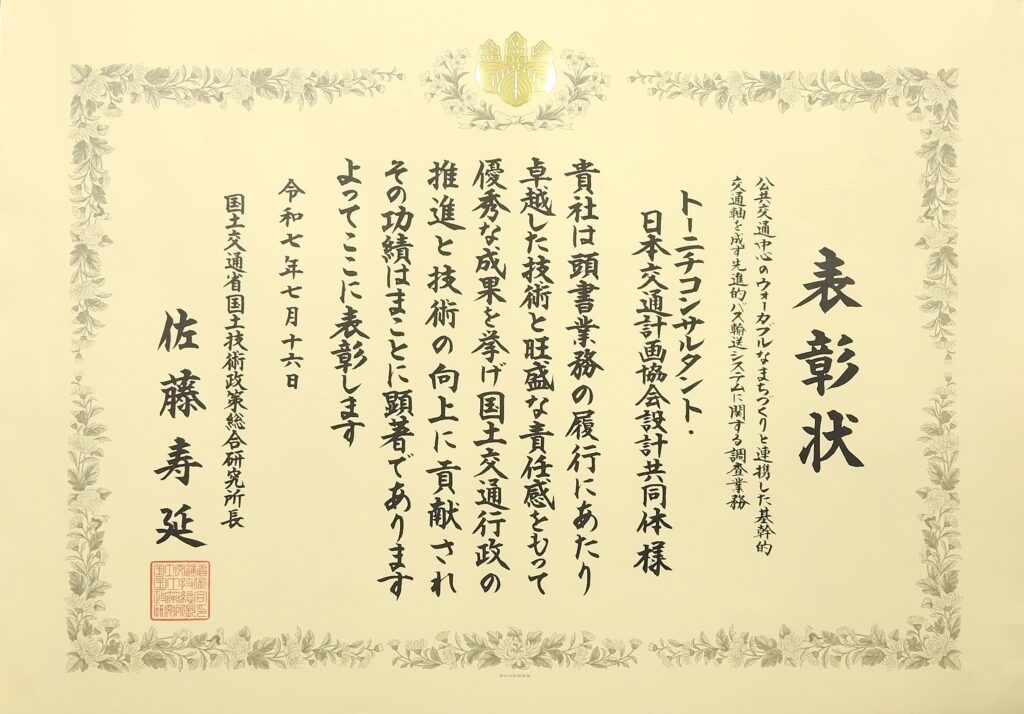 表彰状
公共交通中心のウォーカブルなまちづくりと連携した基幹的
交通軸を成す先進的バス輸送システムに関する調査業務
トーニチコンサルタント・
日本交通計画協会設計共同体様
貴社は頭書業務の履行にあたり
卓越した技術と旺盛な責任感をもって
優秀な成果を挙げ国土交通行政の
推進と技術の向上に貢献され
その功績はまことに顕著であります
よってここに表彰します
令和七年七月十六日
国土交通省国土技術政策総合研究所長
佐藤寿延